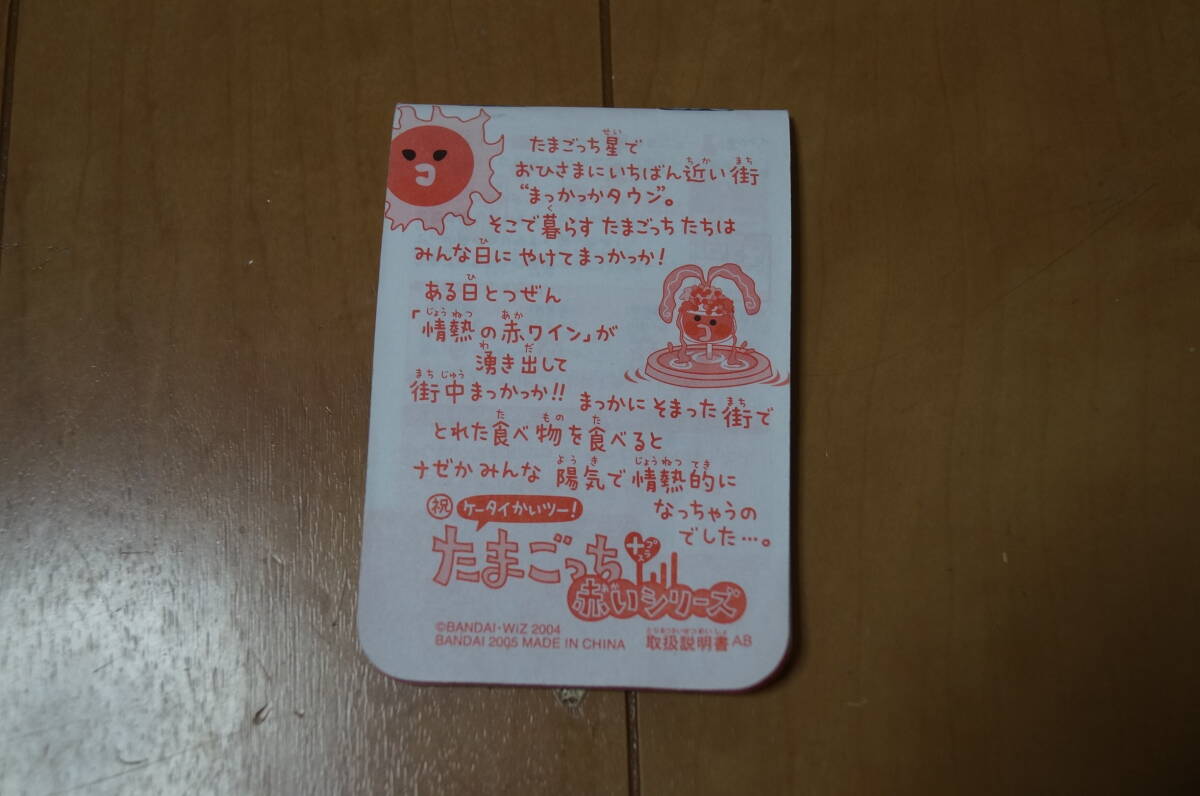 たまごっち星で
おひさまにいちばん近い街
“まっかっかタウン”。
そこで暮らす たまごっち たちは
みんな日に やけてまっかっか！
ある日とつぜん
「情熱の赤ワイン」が
湧き出して
街中まっかっか!! まっかに そまった 街で
とれた食べ物を食べると
ナゼか みんな 陽気で情熱的に
なっちゃうの
でした…。
祝 ケータイかいツー！
たまごっち＋プラス
赤いシリーズ
©BANDAI・WiZ 2004
BANDAI 2005 MADE IN CHINA 取扱説明書 AB